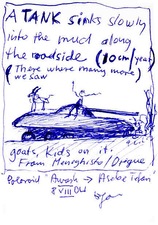 A TANK sinks slowly
into the mud along
the roadside (10cm/year)
(There where many more)
we saw
goats, Kids on it.
From Menghistu/Derque!
Polaroid "Awash → Asebe Teferi"
8 VIII 04